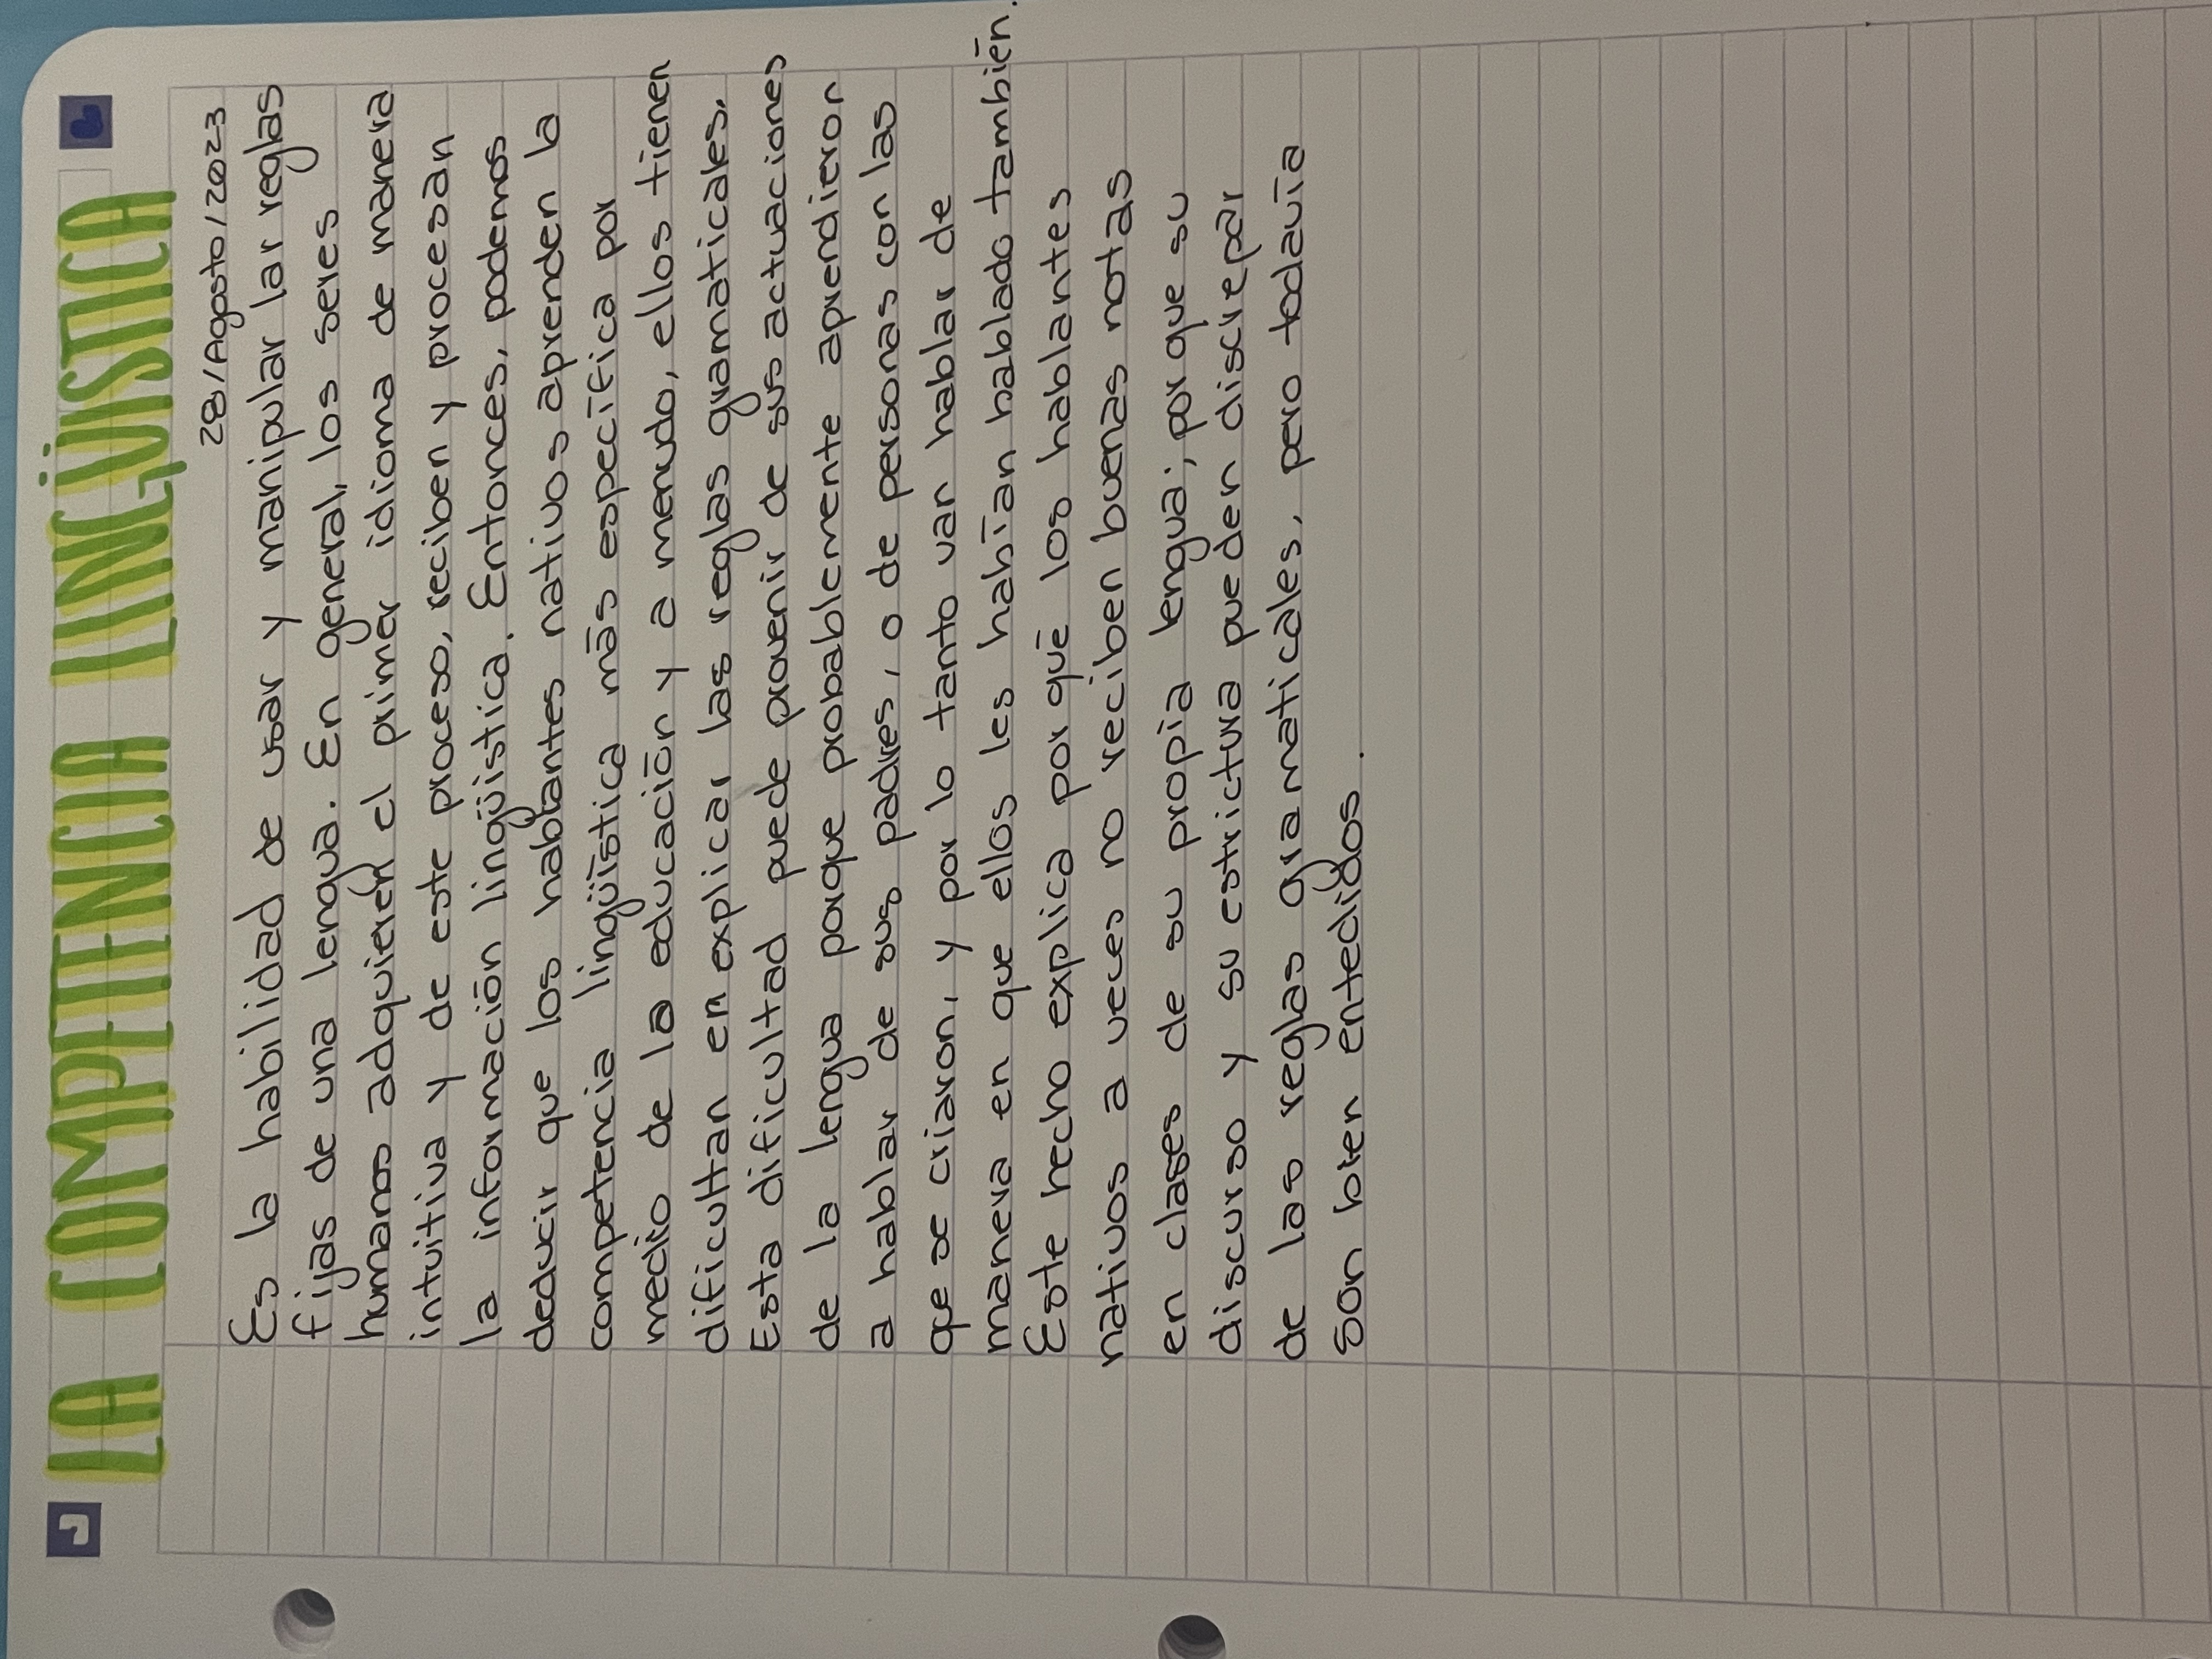 LA COMPETENCIA LINGÜÍSTICA
28/Agosto/2023
Es la habilidad de usar y manipular lar reglas
fijas de una lengua. En general, los seres
humanos adquieren el primer idioma de manera
intuitiva y de este proceso, reciben y procesan
la información lingüística. Entonces, podemos
deducir que los hablantes nativos aprenden la
competencia lingüística más específica por
medio de la educación y a menudo, ellos tienen
dificultan en explicar las reglas gramaticales.
Esta dificultad puede provenir de sus actuaciones
de la lengua porque probablemente aprendieron
a hablar de sus padres, o de personas con las
que se criaron, y por lo tanto van hablar de
manera en que ellos les habían hablado también.
Este hecho explica por qué los hablantes
nativos a veces no reciben buenas notas
en clases de su propia lengua; porque su
discurso y su estrictura pueden discrepar
de las reglas gramaticales, pero todavía
son bien entedidos.